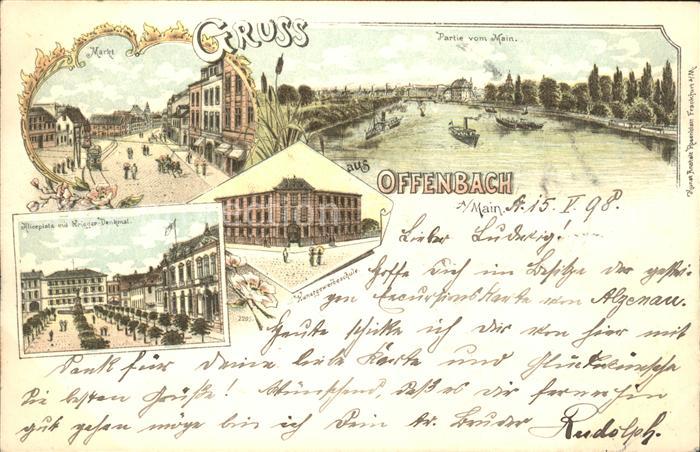 GRUSS
aus
OFFENBACH
a/Main.
Markt
Partie vom Main.
Aliceplatz mit Krieger-Denkmal.
Kunstgewerbeschule.
Kunst Anstalt Rosenblatt Frankfurt a/M.
2205
d. 15. V. 98.
Lieber Ludwig!
Hoffe Dich im Besitze der gestri-
gen Excursionskarte von Alzenau.
Heute schicke ich Dir von hier mit
Dank für deine liebe Karte und Glückwünsche
die besten Grüße! Wünschend, daß es dir fernerhin
gut gehen möge bin ich Dein tr. Bruder
Rudolph.